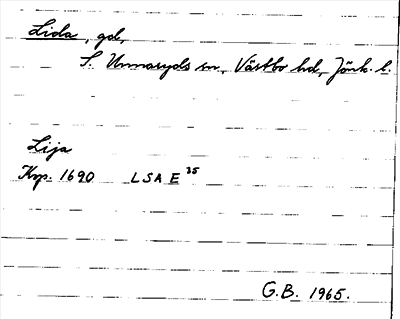 Lida, gd,
S. Unnaryds sn, Västbo hd, Jönk. l.
Lija
Krp. 1690 LSA E 35
G.B. 1965.